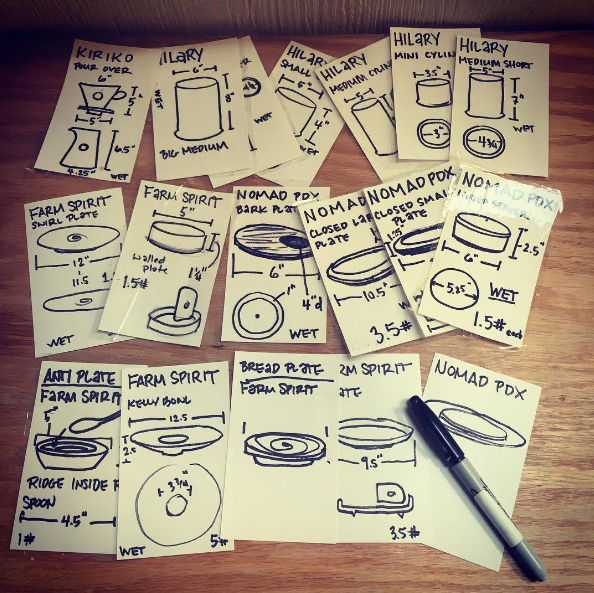 KIRIKO
POUR OVER
6"
5"
5"
6.5"
4.25"
WET
HILARY
6"
8"
WET
BIG MEDIUM
4¾"
HILARY
SMALL
5"
4"
WET
HILARY
MEDIUM CYLIN
5"
WET
HILARY
MINI CYLIN
3.5"
3"
HILARY
MEDIUM SHORT
5"
7"
WET
4¾"
FARM SPIRIT
SWIRL PLATE
12"
11.5
WET
FARM SPIRIT
5"
Walled
plate
1¼"
1.5#
NOMAD PDX
BARK PLATE
6"
1"
4"d
WET
NOMAD
CLOSED LAR
PLATE
10.5"
3.5#
NOMAD PDX
CLOSED SMAL
PLATE
NOMAD PDX
2.5"
6"
5.25"
WET
1.5# each
ANTI PLATE
FARM SPIRIT
RIDGE INSIDE F
SPOON
4.5"
1#
FARM SPIRIT
KELLY BOWL
12.5
2.5
3¾"
WET
5#
BREAD PLATE
FARM SPIRIT
RM SPIRIT
ATE
9.5"
3.5#
NOMAD PDX